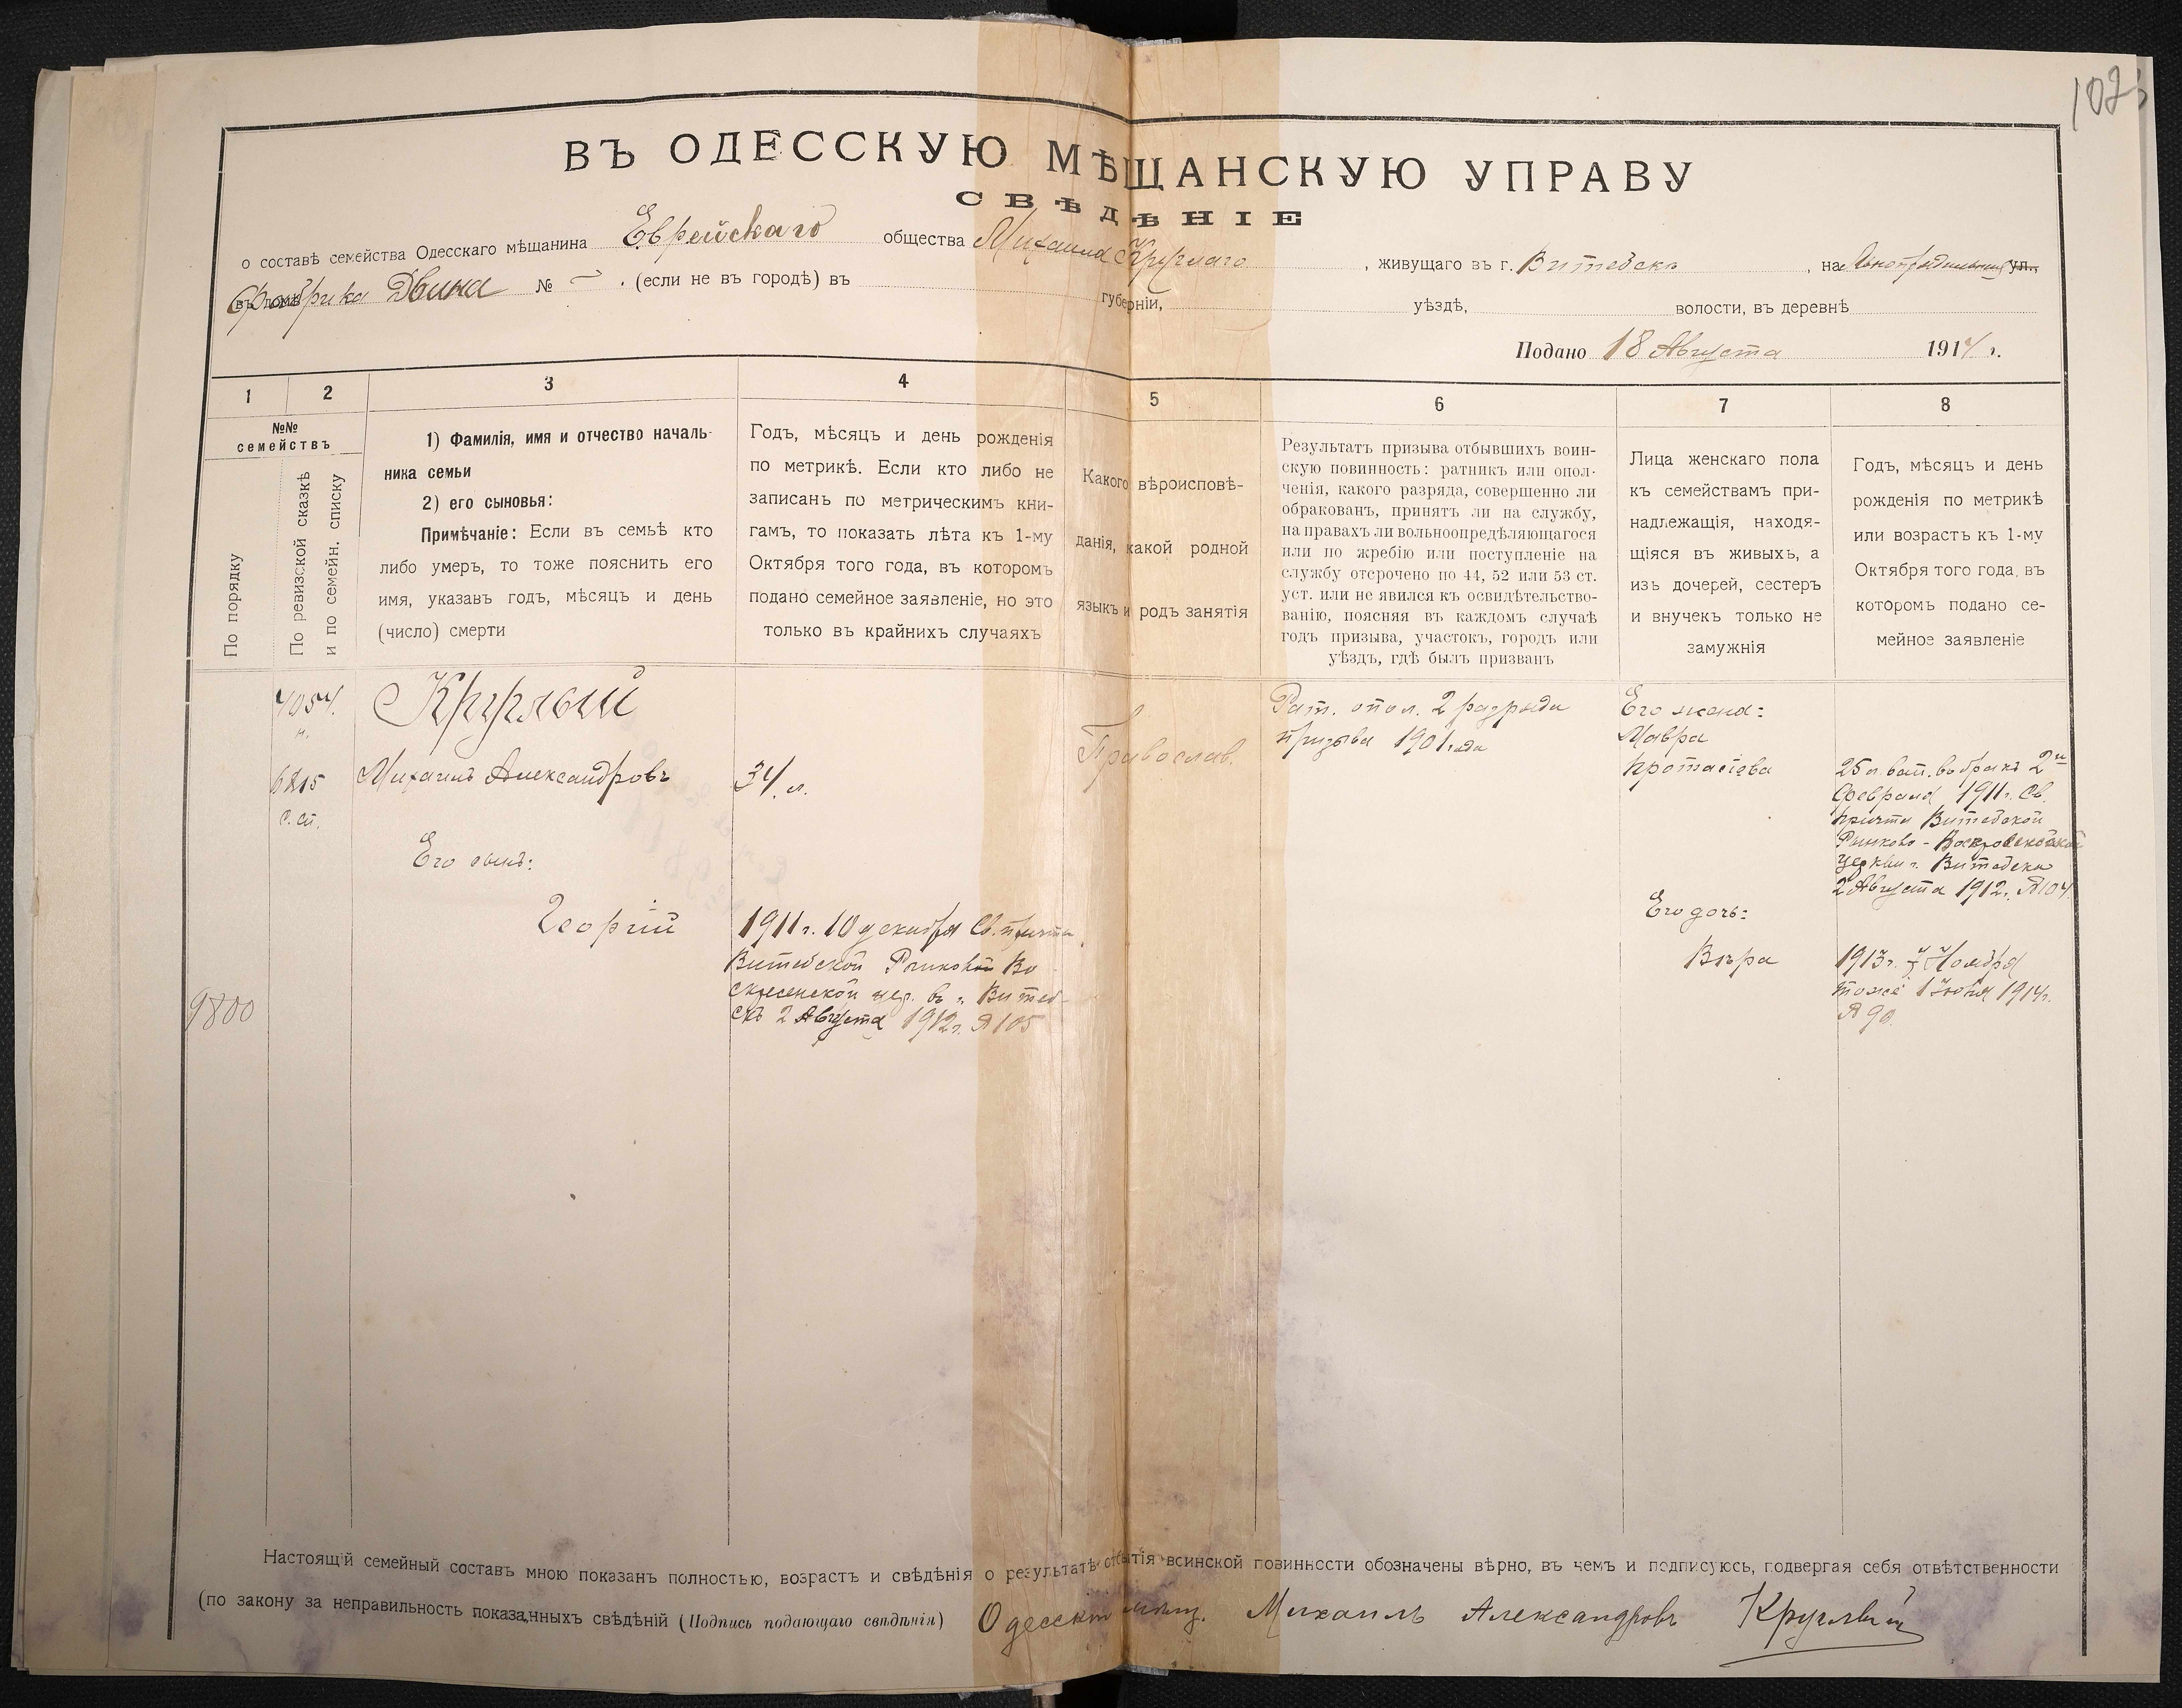 1023
ВЪ ОДЕССКУЮ МѢЩАНСКУЮ УПРАВУ
СВѢДѢНІЕ
о составѣ семейства Одесскаго мѣщанина Еврейскаго общества Михаила Круглаго, живущаго въ г. Витебскѣ, на Льнопрядильная ул.,
въ домѣ фабрика Двина № — . (если не въ городѣ) въ губерніи, уѣздѣ, волости, въ деревнѣ
Подано 18 Августа 1914 г.
1 2 3 4 5 6 7 8
№№
семействъ
По порядку
По ревизской сказкѣ
и по семейн. списку
1) Фамилія, имя и отчество началь-
ника семьи
2) его сыновья:
Примѣчаніе: Если въ семьѣ кто
либо умеръ, то тоже пояснить его
имя, указавъ годъ, мѣсяцъ и день
(число) смерти
Годъ, мѣсяцъ и день рожденія
по метрикѣ. Если кто либо не
записанъ по метрическимъ кни-
гамъ, то показать лѣта къ 1-му
Октября того года, въ которомъ
подано семейное заявленіе, но это
только въ крайнихъ случаяхъ
Какого вѣроисповѣ-
данія, какой родной
языкъ и родъ занятія
Результатъ призыва отбывшихъ воин-
скую повинность: ратникъ или опол-
ченія, какого разряда, совершенно ли
обракованъ, принятъ ли на службу,
на правахъ ли вольноопредѣляющагося
или по жребію или поступленіе на
службу отсрочено по 44, 52 или 53 ст.
уст. или не явился къ освидѣтельство-
ванію, поясняя въ каждомъ случаѣ
годъ призыва, участокъ, городъ или
уѣздъ, гдѣ былъ призванъ
Лица женскаго пола
къ семействамъ при-
надлежащія, находя-
щіяся въ живыхъ, а
изъ дочерей, сестеръ
и внучекъ только не
замужнія
Годъ, мѣсяцъ и день
рожденія по метрикѣ
или возрастъ къ 1-му
Октября того года, въ
которомъ подано се-
мейное заявленіе
4054.
н.
6815
с. сп.
9800
Круглый
Михаилъ Александровъ
Его сынъ:
Георгій
34 л.
1911 г. 10 декабря Св. причта
Витебской Рынковой Во
скресенской цер. въ г. Витеб-
скѣ 2 Августа 1912 г. № 105
Православ.
Рат. опол. 2 разряда
призыва 1901 года
Его жена:
Мавра
Протасіева
Его дочь:
Вѣра
25 л. вст. въ бракъ 2го
Февраля 1911 г. Св.
причта Витебской
Рынково-Воскресенской
церкви г. Витебска
2 Августа 1912 г. № 104
1913 г. 7 Ноября
тоже 1 Іюня 1914 г.
№ 90.
Настоящій семейный составъ мною показанъ полностью, возрастъ и свѣдѣнія о результатѣ отбытія воинской повинности обозначены вѣрно, въ чемъ и подписуюсь, подвергая себя отвѣтственности
(по закону за неправильность показанныхъ свѣдѣній (Подпись подающаго свѣдѣнія) Одесскій мѣщ. Михаилъ Александровъ Круглый